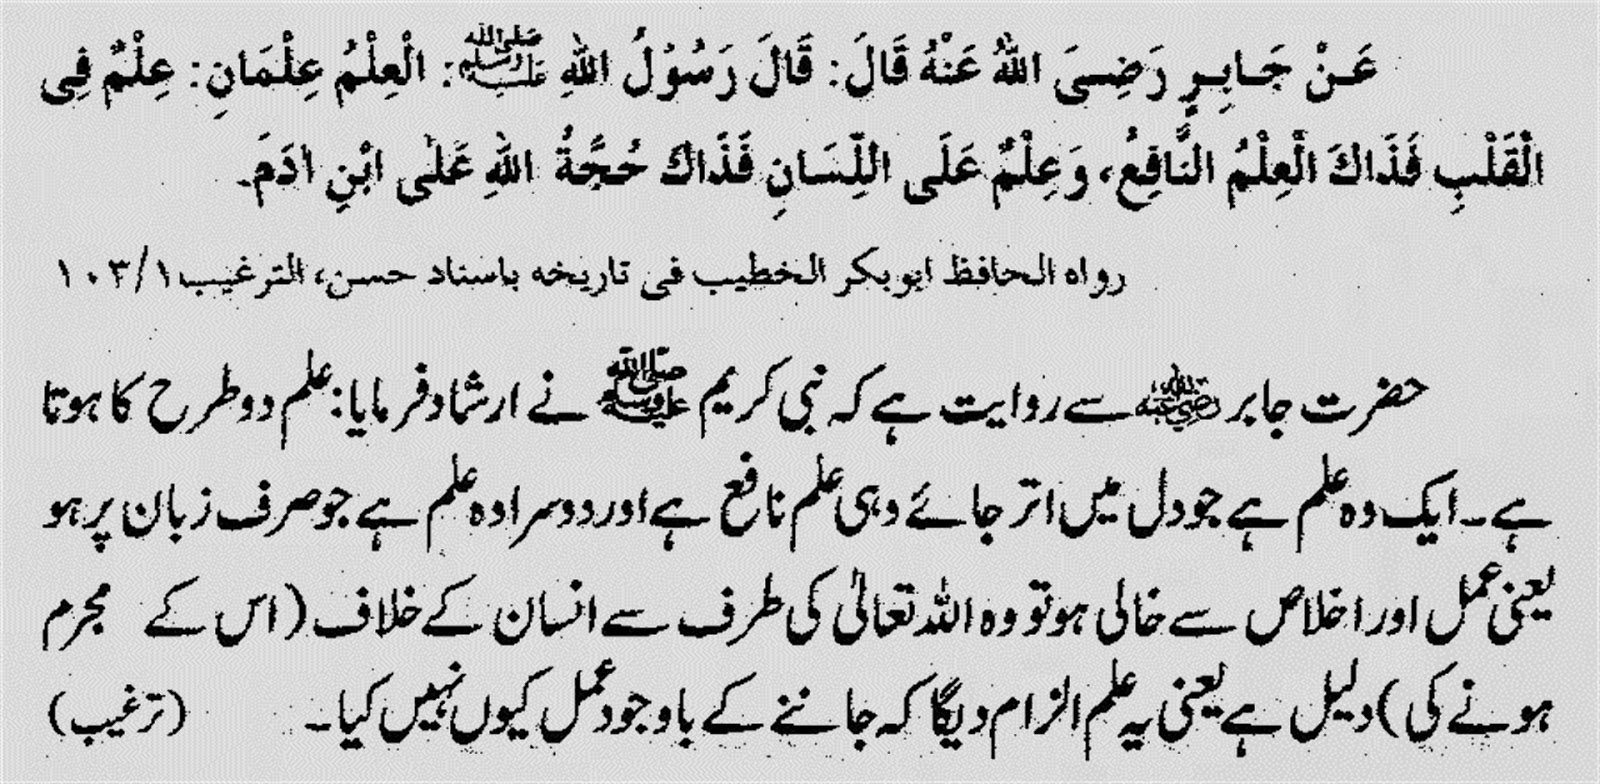 عَنْ جَابِرٍ رَضِىَ اللهُ عَنْهُ قَالَ: قَالَ رَسُوْلُ اللهِ ﷺ: الْعِلْمُ عِلْمَانِ: عِلْمٌ فِى
الْقَلْبِ فَذَاكَ الْعِلْمُ النَّافِعُ، وَعِلْمٌ عَلَى اللِّسَانِ فَذَاكَ حُجَّةُ اللهِ عَلٰى ابْنِ اٰدَمَ۔
رواه الحافظ ابوبكر الخطيب فى تاريخه باسناد حسن، الترغيب ١٠٣/١
حضرت جابر ؓ سے روایت ہے کہ نبی کریم ﷺ نے ارشاد فرمایا: علم دو طرح کا ہوتا
ہے۔ ایک وہ علم ہے جو دل میں اتر جائے وہی علم نافع ہے اور دوسرا وہ علم ہے جو صرف زبان پر ہو
یعنی عمل اور اخلاص سے خالی ہو تو وہ اللہ تعالیٰ کی طرف سے انسان کے خلاف (اس کے مجرم
ہونے کی) دلیل ہے یعنی یہ علم الزام دیگا کہ جاننے کے باوجود عمل کیوں نہیں کیا۔ (ترغیب)